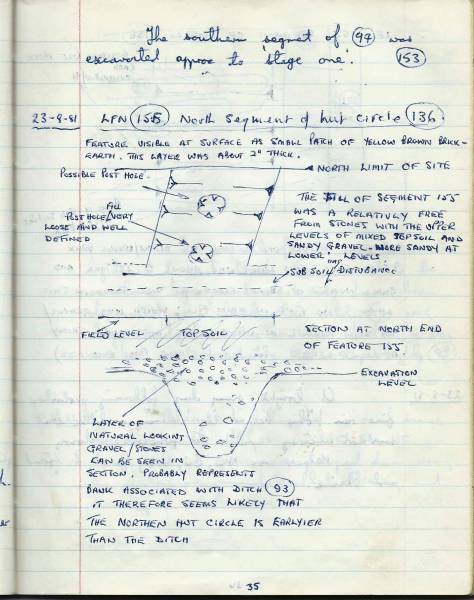 The southern segmet of 97 was
excavated approx to 'stage one'. 153
23-9-81 LFN 155 North Segment of hut circle 136.
FEATURE VISIBLE AT SURFACE AS SMALL PATCH OF YELLOW BROWN BRICK-
EARTH. THIS LAYER WAS ABOUT 2" THICK.
POSSIBLE POST HOLE.
NORTH LIMIT OF SITE
FILL
POSTHOLE VERY
LOOSE AND WELL
DEFINED
THE FILL OF SEGMENT 155
WAS A RELATIVELY FREE
FROM STONES WITH THE UPPER
LEVELS OF MIXED SEPSOIL AND
SANDY GRAVEL - MORE SANDY AT
LOWER LEVELS.
SUB SOIL DISTURBANCE
FIELD LEVEL TOP SOIL
SECTION AT NORTH END
OF FEATURE 155
EXCAVATION
LEVEL
LAYER OF
NATURAL LOOKING
GRAVEL/STONES
CAN BE SEEN IN
SECTION. PROBABLY REPRESENTS
BANK ASSOCIATED WITH DITCH 93
IT THEREFORE SEEMS LIKELY THAT
THE NORTHEN HUT CIRCLE IS EARLYIER
THAN THE DITCH
35